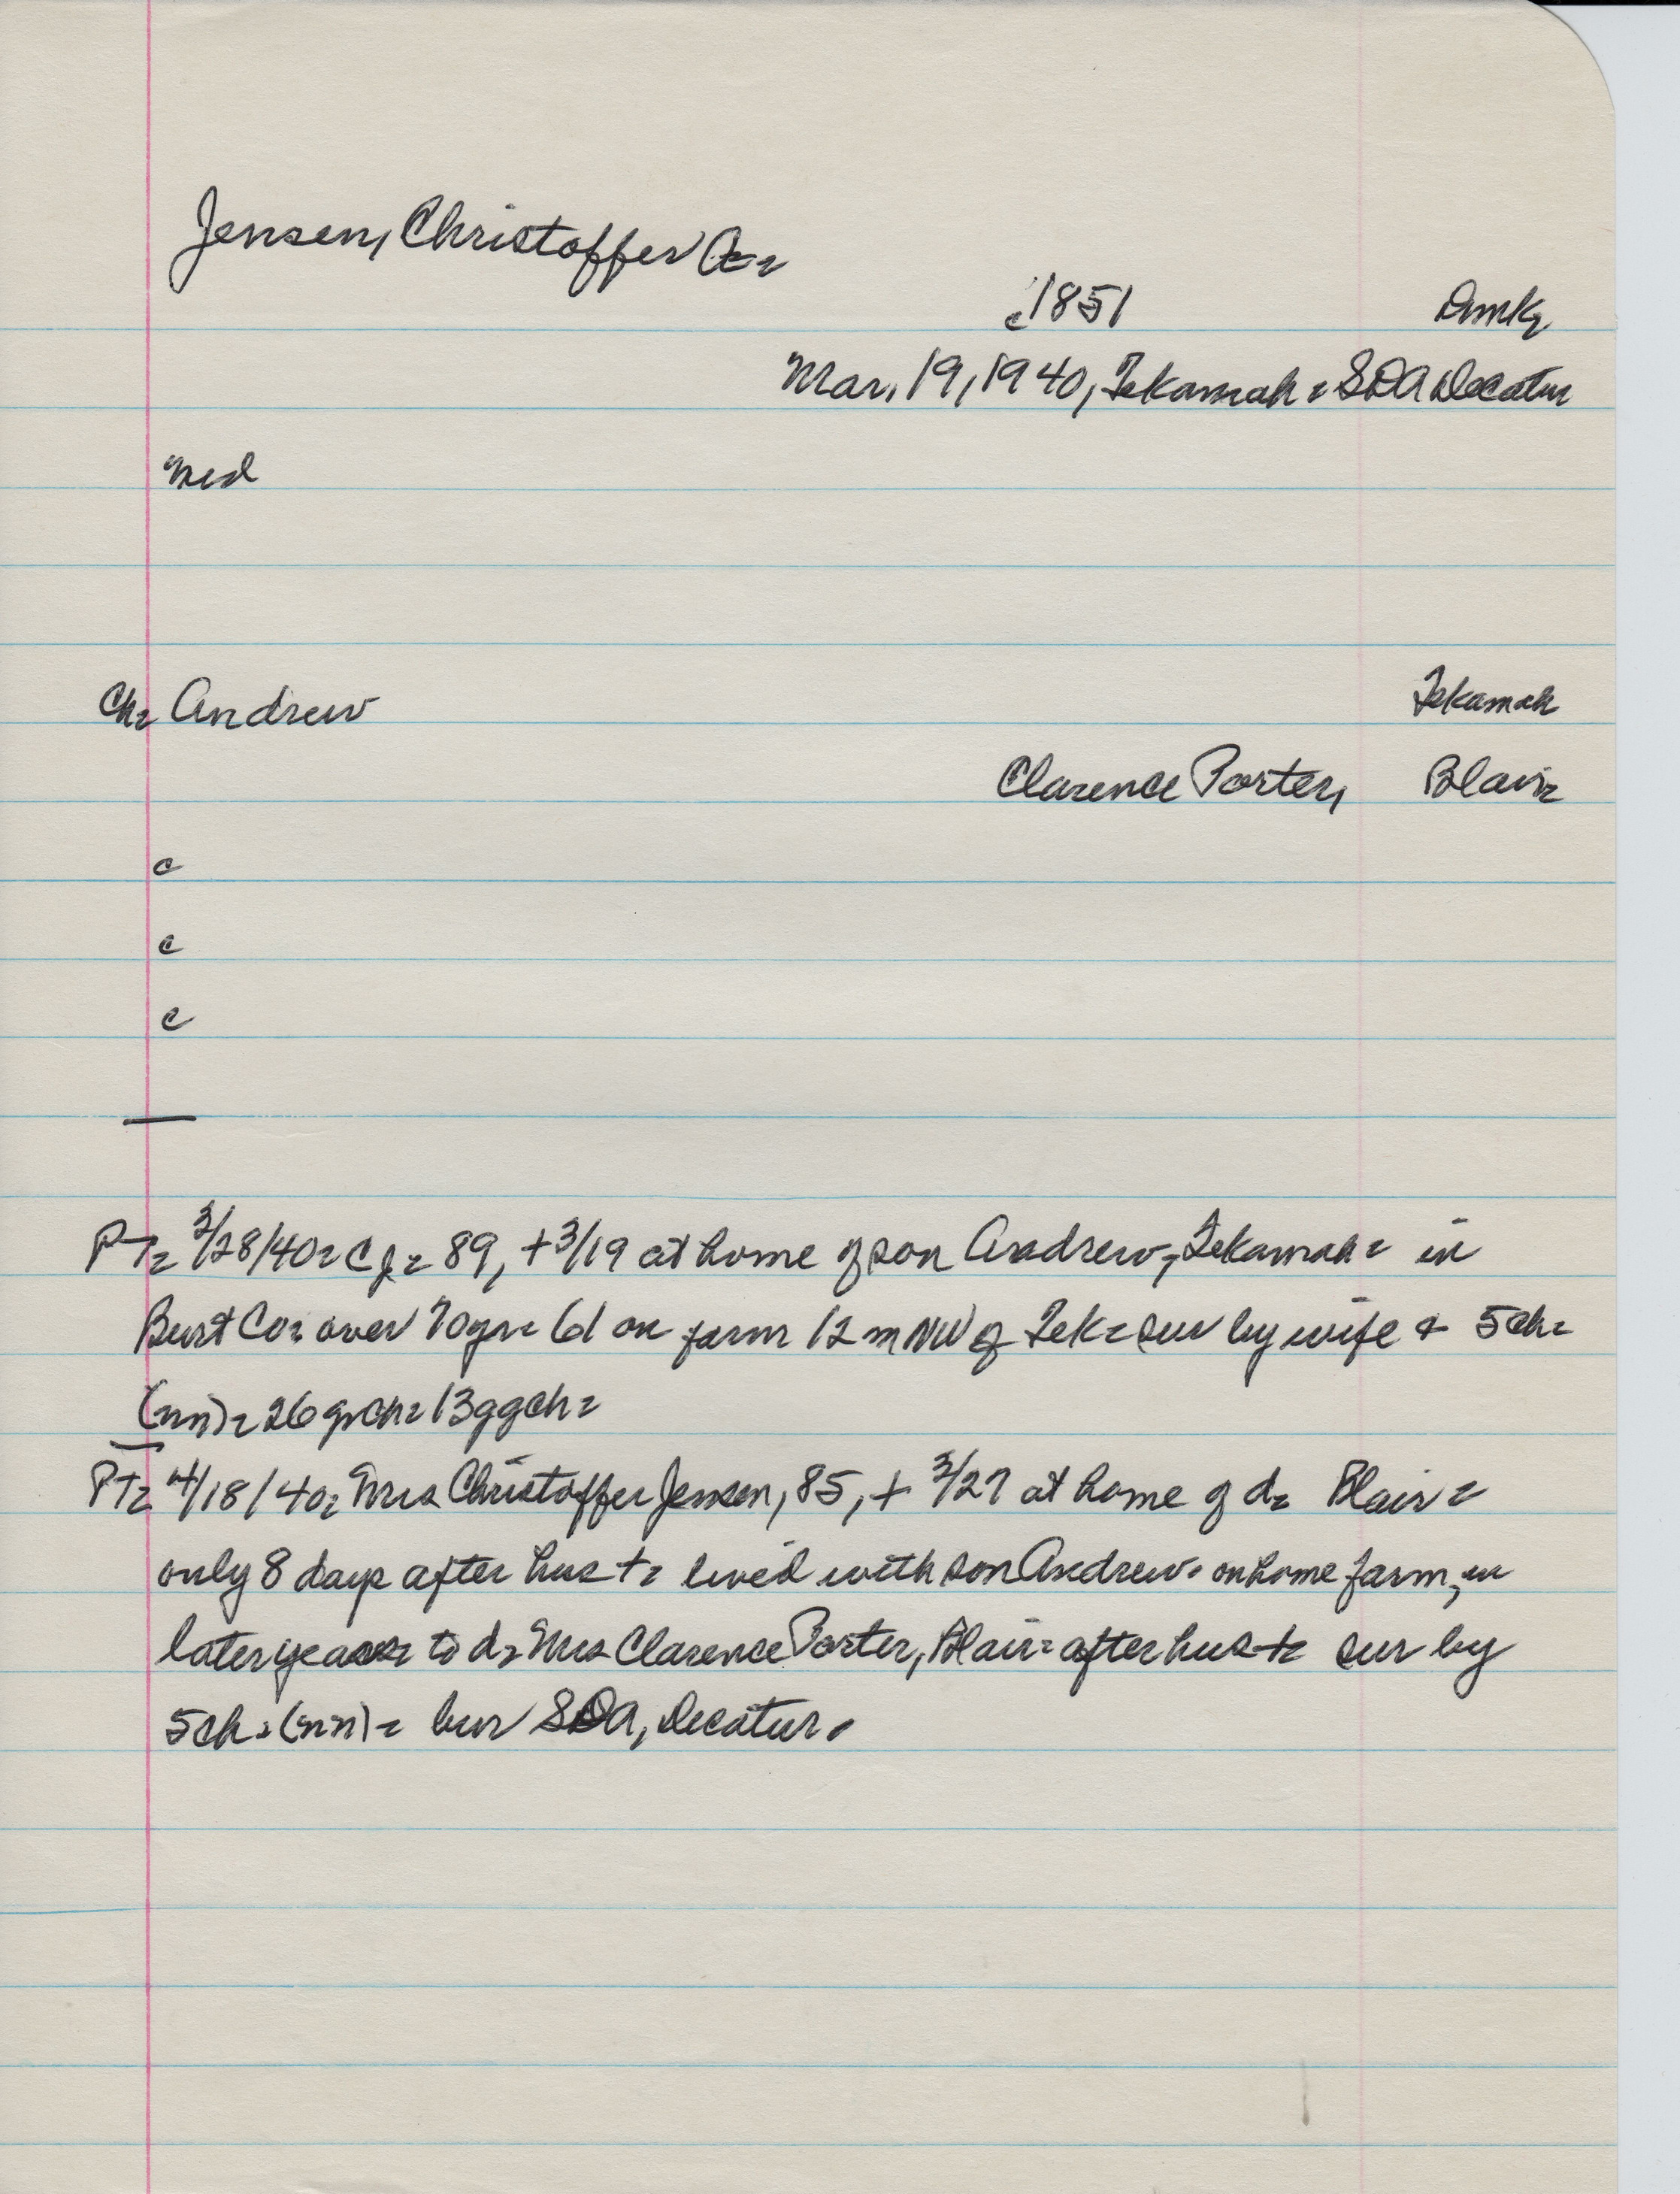 Jensen, Christoffer A=
c1851 Dmk,
Mar. 19, 1940, Tekamah = SDA Decatur
med
Ch= Andrew Tekamah
Clarence Porter, Blair=
c
c
c
—
PT= 3/28/40= CJ= 89, +3/19 at home of son Andrew, Tekamah= in
Burt Co= over 70yr= 61 on farm 12 m NW of Tek= sur by wife & 5ch=
(nn)= 26 grch= 13ggch=
PT= 4/18/40= Mrs Christoffer Jensen, 85, + 3/27 at home of d= Blair=
only 8 days after hus +=  lived with son Andrew= on home farm, in
later years= to d= Mrs Clarence Porter, Blair= after hus += sur by
5ch= (nn)= bur SDA, Decatur.